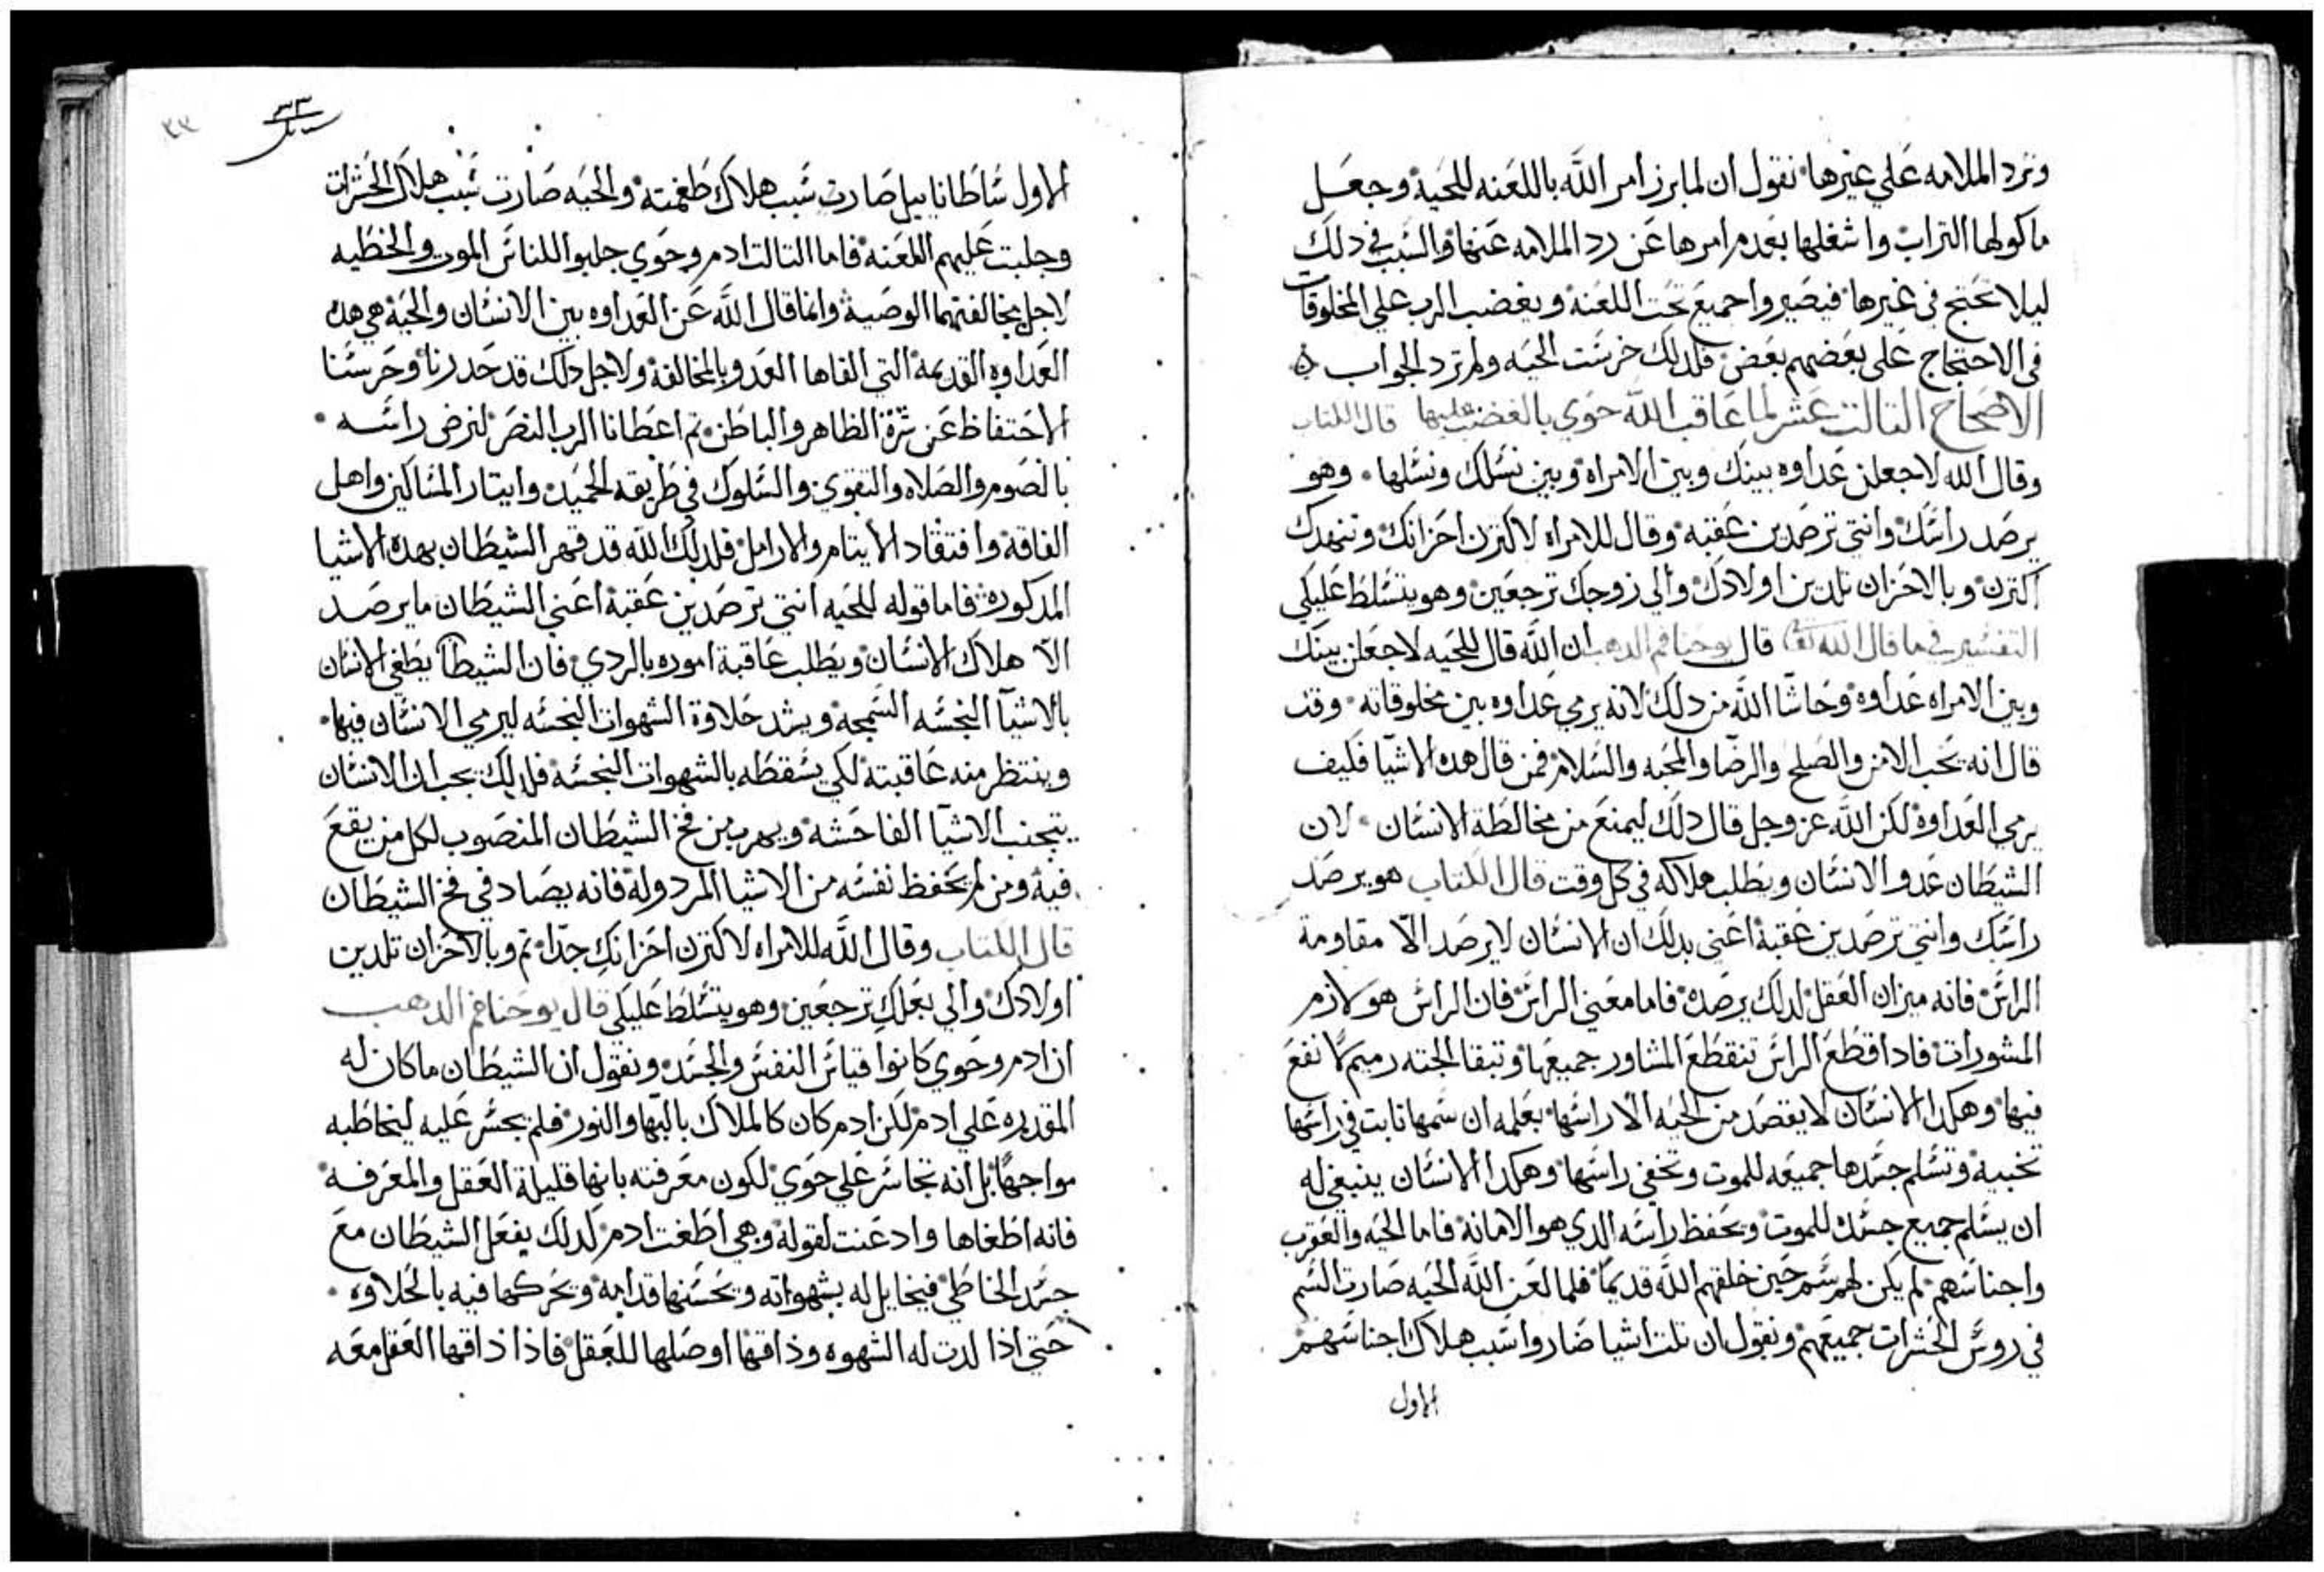 وترد الملامه علي غيرها نقول ان لما برز امر الله باللعنه للحيه وجعل
ماكولها التراب واشغلها بعدم امرها عن رد الملامه عنها والسبب في دلك
ليلا تحتج في غيرها فيصيروا جميع تحت اللعنه ويغضب الرب علي المخلوقات
في الاحتجاج علي بعضهم بعض فلدلك خرست الحيه ولم ترد الجواب
الاصحاح التالت عشر لما عاقب الله حوي بالغضب عليها قال الكتاب
وقال الله لاجعلن عداوه بينك وبين الامراه وبين نسلك ونسلها وهو
يرصد راسك وانتي ترصدين عقبه وقال للامراه لاكترن احزانك وتنهدك
اكترن وبالاحزان تلدين اولادك والي زوجك ترجعين وهو يتسلط عليكي
التفسير في ما قال الله تع قال يوحنا فم الدهب ان الله قال للحيه لاجعلن بينك
وبين الامراه عداوه وحاشا الله من دلك لانه يرمي عداوه بين مخلوقاته وقد
قال انه يحب الامن والصلح والرضا والمحبه والسلام فمن قال هده الاشيا فكيف
يرمي العداوه لكن الله عز وجل قال دلك ليمنع من مخالطة الانسان لان
الشيطان عدو الانسان ويطلب هلاكه في كل وقت قال الكتاب هو يرصد
راسك وانتي ترصدين عقبه اعني بدلك ان الانسان لا يرصد الا مقاومة
الراس فانه ميزان العقل لدلك يرصده فاما معني الراس فان الراس هو لازم
المشورات فادا قطع الراس تنقطع المشاور جميعها وتبقا الجته رميم لا نفع
فيها وهكدا الانسان لا يقصد من الحيه الا راسها بعلمه ان سمها نابت في راسها
تخبيه وتسلم جسدها جميعه للموت وتخفي راسها وهكدا الانسان ينبغي له
ان يسلم جميع جسده للموت ويحفظ راسه الدي هو الامانه فاما الحيه والعقرب
واجناسهم لم يكن لهم سم حين خلقهم الله قديمًا فلما لعن الله الحيه صارت السم
في روس الحشرات جميعهم ونقول ان تلت اشيا صاروا سبب هلاك اجناسهم
الاول
٣٣
٣٣
الاول ساطاناييل صارت سبب هلاك طغمته والحيه صارت سبب هلاك الحشرات
وجلبت عليهم اللعنه فاما التالت ادم وحوي جلبوا للناس الموت والخطيه
لاجل مخالفتهما الوصيه وانما قال الله عن العداوه بين الانسان والحيه هي هده
العداوه القديمه التي القاها العدو بالمخالفه ولاجل دلك قد حدرنا وحرسنا
الاحتفاظ عن شره الظاهر والباطن تم اعطانا الرب النصر لنرض راسه
بالصوم والصلاه والتقوي والسلوك في طريقه الحميده وايتار المساكين واهل
الفاقه وافتقاد الايتام والارامل فلدلك الله قد قهر الشيطان بهده الاشيا
المدكوره فاما قوله للحيه انتي ترصدين عقبه اعني الشيطان ما يرصد
الا هلاك الانسان ويطلب عاقبة اموره بالردي فان الشيطا يطغي الانسان
بالاشيا النجسه السمجه ويشد حلاوة الشهوات النجسه ليرمي الانسان فيها
وينتظر منه عاقبته لكي يسقطه بالشهوات النجسه فلدلك يجب ان الانسان
يتجنب الاشيا الفاحشه ويهرب من فخ الشيطان المنصوب لكل من يقع
فيه ومن لم يحفظ نفسه من الاشيا المردوله فانه يصاد في فخ الشيطان
قال الكتاب وقال الله للامراه لاكترن احزانك جدًا تم وبالاحزان تلدين
اولادك والي بعلك ترجعين وهو يتسلط عليكي قال يوحنا فم الدهب
ان ادم وحوي كانوا قياس النفس والجسد ونقول ان الشيطان ما كان له
المقدره علي ادم لكن ادم كان كالملاك بالبها والنور فلم يجسر عليه ليخاطبه
مواجهًا بل انه تجاسر علي حوي لكون معرفته بانها قليلة العقل والمعرفه
فانه اطغاها وادعنت لقوله وهي اطغت ادم لدلك يفعل الشيطان مع
جسد الخاطي فيخايل له بشهواته ويحسنها قدامه ويحركها فيه بالحلاوه
حتي اذا لدت له الشهوه وذاقها اوصلها للعقل فاذا ذاقها العقل معه